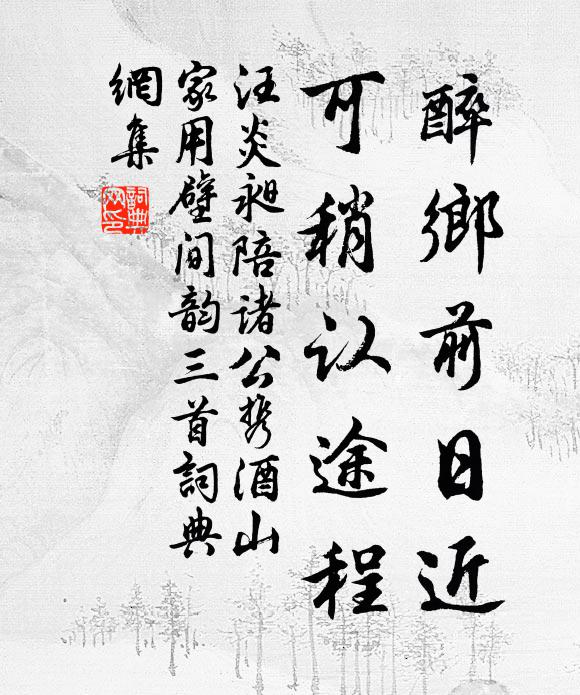 醉鄉前日近
可稍认途程
汪炎昶陪諸公携酒山
家用壁间韵三首詞典
網集
詞典
网印